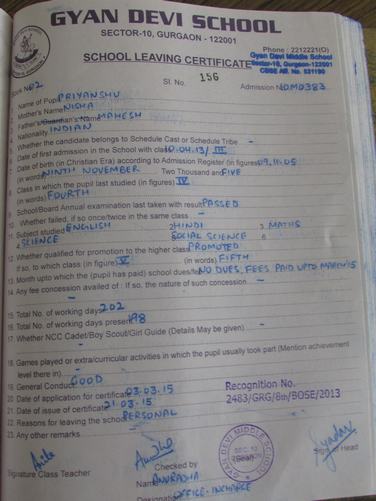 GYAN DEVI SCHOOL
SECTOR-10, GURGAON - 122001
Phone : 2212221(O)
SCHOOL LEAVING CERTIFICATE
Gyan Devi Middle School
Sector-10, Gurgaon-122001
CBSE Aff. No. 531190
Book No. 02 Sl. No. 156 Admission No. DMD383
1. Name of Pupil PRIYANSHU
2. Mother's Name NISHA
3. Father's/Guardian's Name MAHESH
4. Nationality INDIAN
5. Whether the candidate belongs to Schedule Cast or Schedule Tribe -
6. Date of first admission in the School with class 10.04.13/ III
7. Date of birth (in Christian Era) according to Admission Register (in figures) 09.11.05
(in words) NINTH NOVEMBER Two Thousand and FIVE
8. Class in which the pupil last studied (in figures) IV
(in words) FOURTH
9. School/Board Annual examination last taken with result PASSED
10. Whether failed, if so once/twice in the same class -
11. Subject studied 1. ENGLISH 2. HINDI 3. MATHS
4. SCIENCE 5. SOCIAL SCIENCE 6.
12. Whether qualified for promotion to the higher class PROMOTED
If so, to which class (in figure) V (in words) FIFTH
13. Month upto which the (pupil has paid) school dues/fee NO DUES, FEES PAID UPTO MARCH'15
14. Any fee concession availed of : If so, the nature of such concession -
15. Total No. of working days 202
16. Total No. of working days present 198
17. Whether NCC Cadet/Boy Scout/Girl Guide (Details May be given) -
18. Games played or extra/curricular activities in which the pupil usually took part (Mention achievement
level there in) -
19. General Conduct GOOD
20. Date of application for certificate 03.03.15
21. Date of issue of certificate 21.03.15
22. Reasons for leaving the school PERSONAL
23. Any other remarks
Recognition No.
2483/GRG/8th/BOSE/2013
GYAN DEVI MIDDLE SCHOOL
SEC. 10
Signature Class Teacher
Checked by
Sign of Head
Name ANURADHA
Designation OFFICE-INCHARGE